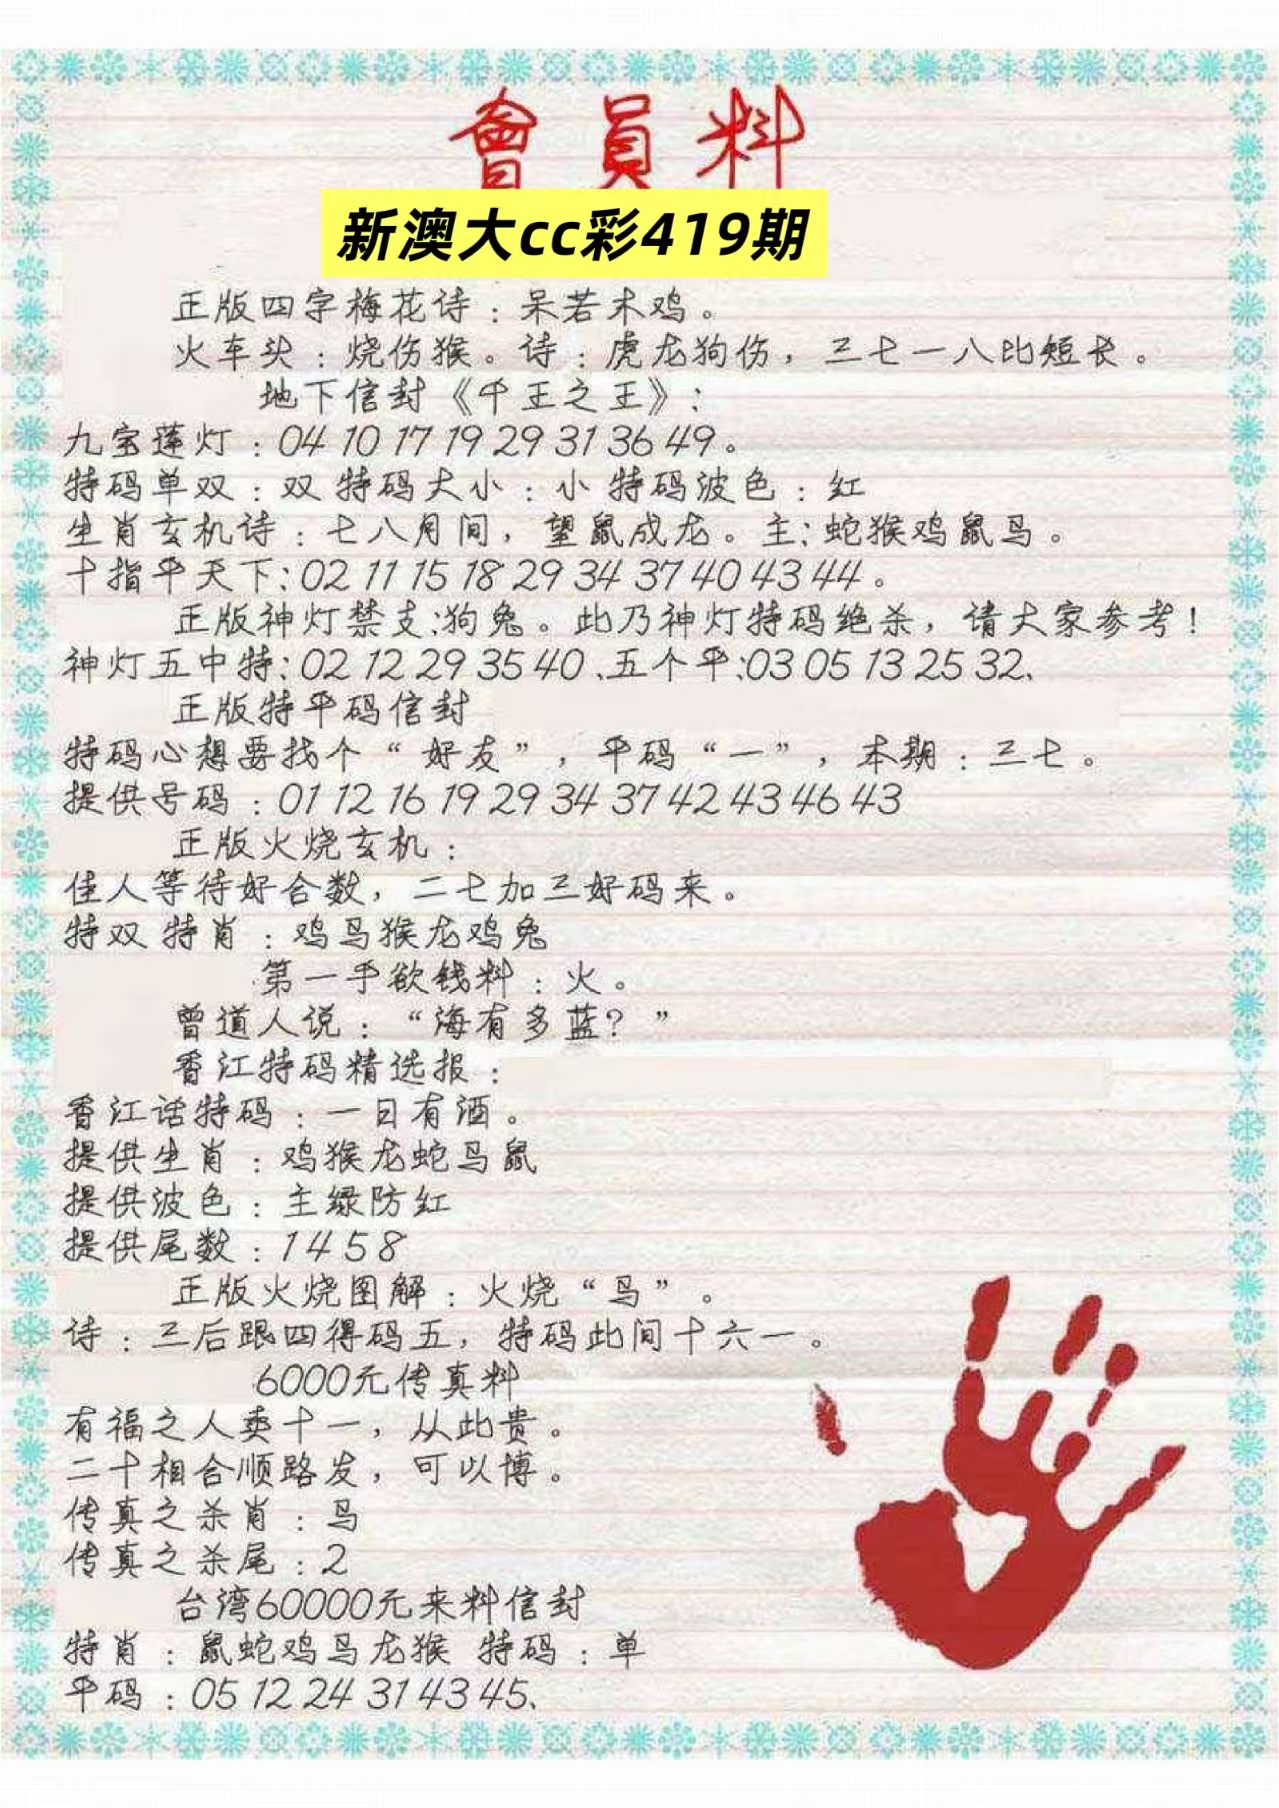 會員料
新澳大cc彩419期
正版四字梅花诗：呆若木鸡。
火车头：烧伤猴。诗：虎龙狗伤，三七一八比短长。
地下信封《千王之王》：
九宝莲灯：04 10 17 19 29 31 36 49。
特码单双：双 特码大小：小 特码波色：红
生肖玄机诗：七八月间，望鼠成龙。主：蛇猴鸡鼠马。
十指平天下：02 11 15 18 29 34 37 40 43 44。
正版神灯禁支：狗兔。此乃神灯特码绝杀，请大家参考！
神灯五中特：02 12 29 35 40、五个平：03 05 13 25 32、
正版特平码信封
特码心想要找个“好友”，平码“一”，本期：三七。
提供号码：01 12 16 19 29 34 37 42 43 46 43
正版火烧玄机：
佳人等待好合数，二七加三好码来。
特双 特肖：鸡马猴龙鸡兔
第一手欲钱料：火。
曾道人说：“海有多蓝？”
香江特码精选报：
香江话特码：一日有酒。
提供生肖：鸡猴龙蛇马鼠
提供波色：主绿防红
提供尾数：1 4 5 8
正版火烧图解：火烧“马”。
诗：三后跟四得码五，特码此间十六一。
6000元传真料
有福之人卖十一，从此贵。
二十相合顺路发，可以博。
传真之杀肖：马
传真之杀尾：2
台湾60000元来料信封
特肖：鼠蛇鸡马龙猴 特码：单
平码：05 12 24 31 43 45、